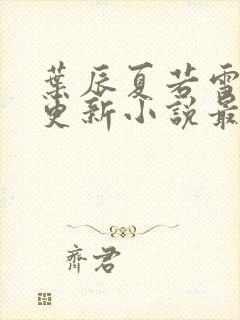 葉辰夏若雪
更新小說最
齊君